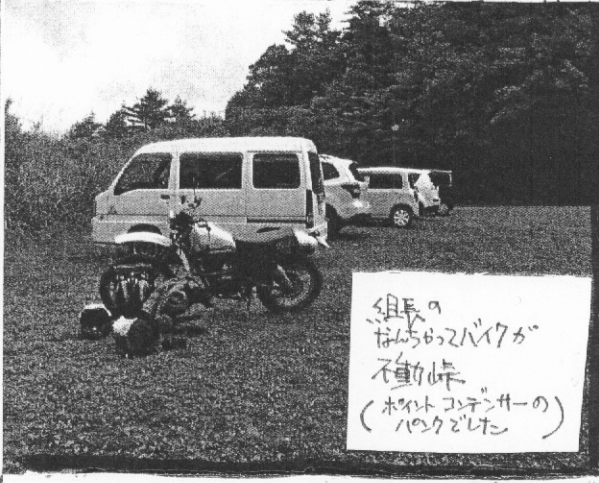 組長の
なんちゃってバイクが
不動峠
(ポイントコンデンサーの
パンクでした)